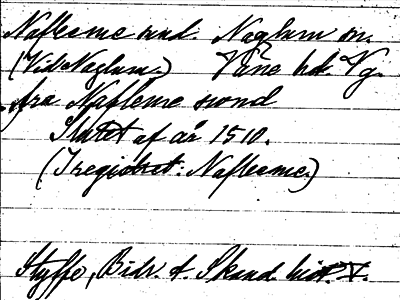 Nafleeme sund. Naglum sn.
(Vid Naglum.) Väne hd. Vg.
fra Nafleme swnd
Slutet af år 1510.
(I registret: Nafleeme.)
Styffe, Bidr. t. Skand. hist. V.